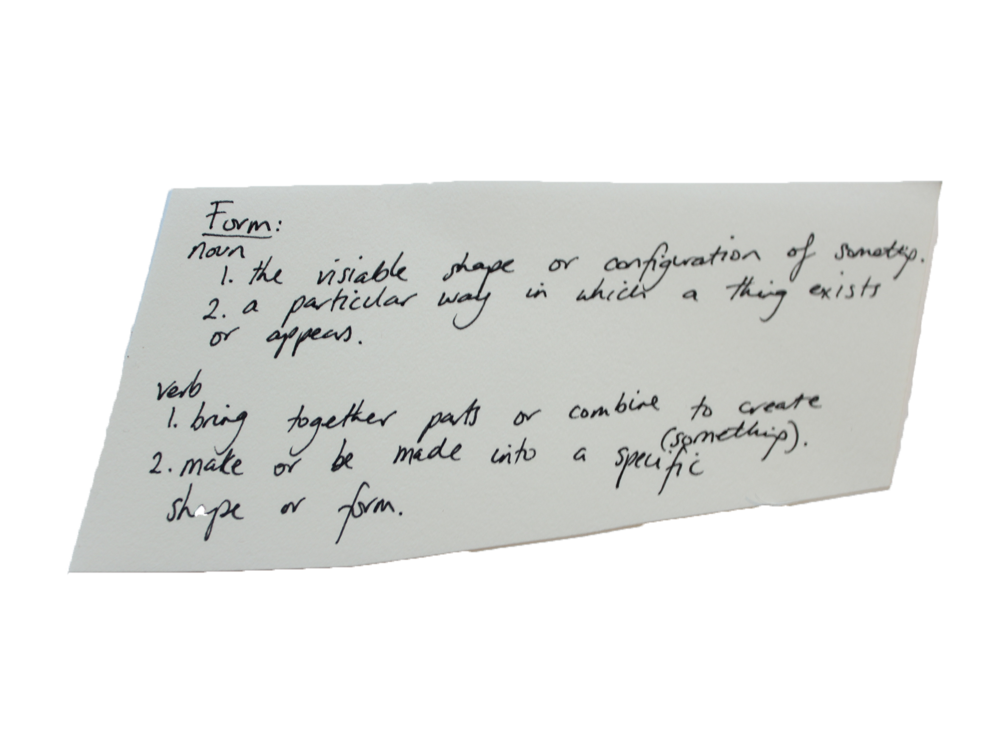 Form:
noun
1. the visiable shape or configuration of something.
2. a particular way in which a thing exists
or appears.
verb
1. bring together parts or combine to create
(something).
2. make or be made into a specific
shape or form.